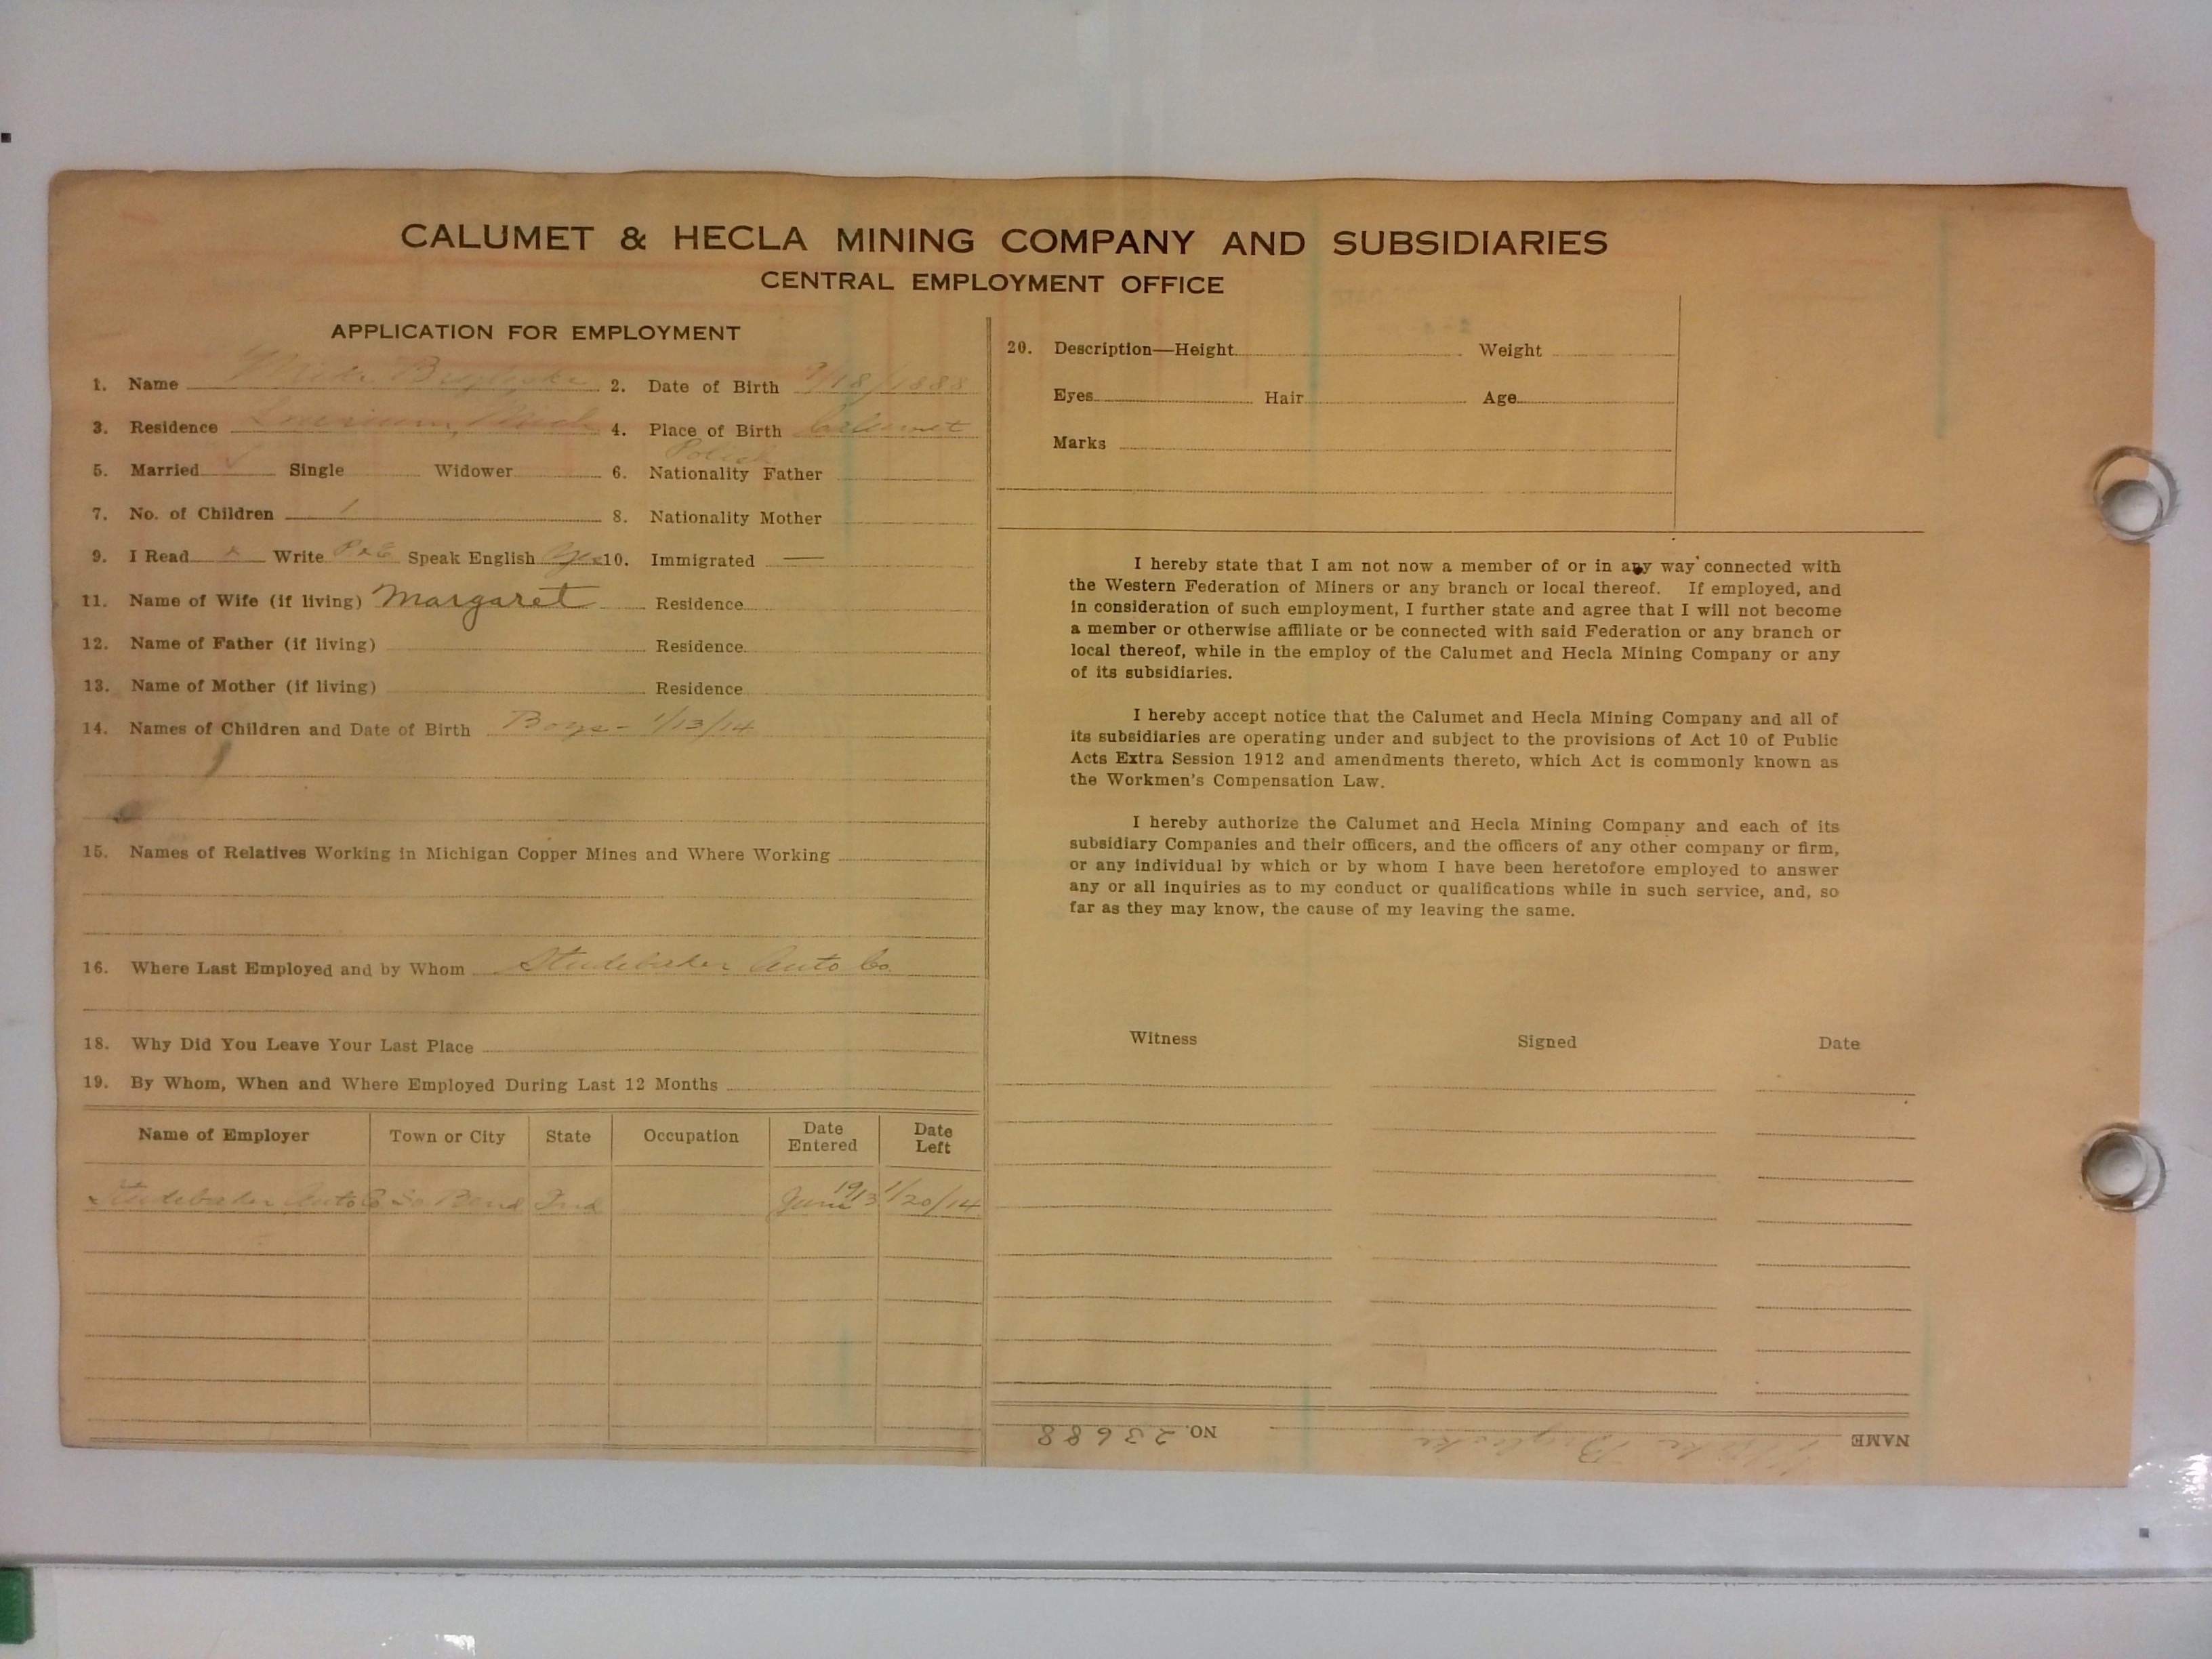 CALUMET & HECLA MINING COMPANY AND SUBSIDIARIES
CENTRAL EMPLOYMENT OFFICE
APPLICATION FOR EMPLOYMENT
1. Name Mike 2. Date of Birth 9/18/1888
3. Residence Laurium, Mich 4. Place of Birth Calumet
Polish
5. Married ✓ Single Widower 6. Nationality Father
7. No. of Children 1 8. Nationality Mother
9. I Read x Write P & E Speak English Yes 10. Immigrated —
11. Name of Wife (if living) Margaret Residence
12. Name of Father (if living) Residence
13. Name of Mother (if living) Residence
14. Names of Children and Date of Birth Boys - 1/13/14
15. Names of Relatives Working in Michigan Copper Mines and Where Working
16. Where Last Employed and by Whom Studebaker Auto Co.
18. Why Did You Leave Your Last Place
19. By Whom, When and Where Employed During Last 12 Months
Name of Employer Town or City State Occupation Date Entered Date Left
Studebaker Auto Co So Bend Ind June 1913 1/20/14
20. Description—Height Weight
Eyes Hair Age
Marks
I hereby state that I am not now a member of or in any way connected with
the Western Federation of Miners or any branch or local thereof. If employed, and
in consideration of such employment, I further state and agree that I will not become
a member or otherwise affiliate or be connected with said Federation or any branch or
local thereof, while in the employ of the Calumet and Hecla Mining Company or any
of its subsidiaries.
I hereby accept notice that the Calumet and Hecla Mining Company and all of
its subsidiaries are operating under and subject to the provisions of Act 10 of Public
Acts Extra Session 1912 and amendments thereto, which Act is commonly known as
the Workmen's Compensation Law.
I hereby authorize the Calumet and Hecla Mining Company and each of its
subsidiary Companies and their officers, and the officers of any other company or firm,
or any individual by which or by whom I have been heretofore employed to answer
any or all inquiries as to my conduct or qualifications while in such service, and, so
far as they may know, the cause of my leaving the same.
Witness Signed Date
NAME Mike NO. 23688